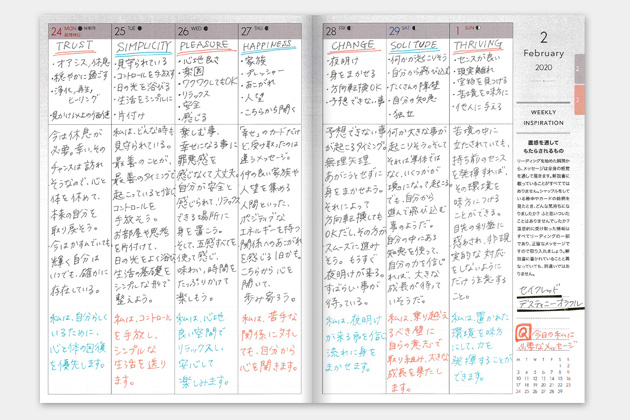 24 MON
TRUST
・オアシス、休息
・穏やかに過ごす
・浄化、再生、
ヒーリング
・見かけ以上の価値
今は休息が
必要。幸い、その
チャンスは訪れ
そうなので、心と
体を休めて、
本来の自分を
取り戻そう。
今はかすんでいても、
輝く自分は
いつでも、確かに
存在している。
私は、自分らしく
いるために、
心と体の回復
を優先します。
25 TUE
SIMPLICITY
・見守られている
・コントロールを手放す
・日の光を浴びる
・生活をシンプルに
・片付け
私は、どんな時も
見守られている。
最善のことが、
最善のタイミングで
起こっていると信じ
コントロールを
手放そう。
お部屋や思考
を片付けて、
日の光をよく浴び
生活の基礎を
シンプルな形で
整えよう。
私は、コントロール
を手放し、
シンプルな
生活を送り
ます。
26 WED
PLEASURE
・心地良さ
・楽園
・ワクワクしてもOK
・リラックス
・安全
・感じる
楽しむ事、
幸せになる事に
罪悪感を
感じなくて大丈夫。
自分が安全と
感じられ、リラックス
できる場所に
身を置こう。
そして、五感すべて
を使って感じ、
味わい、時間を
たっぷりかけて
楽しもう。
私は、心地
良い空間で
リラックスし、
安心して
楽しみます。
27 THU
HAPPINESS
・家族
・プレッシャー
・あこがれ
・人望
・こちらから開く
「幸せ」のカードだけ
ど受け取ったのは
違うメッセージ。
仲の良い家族や
人望を集める
人間といった、
ポジティブな
エネルギーを持つ
関係へのあこがれ
を感じる1日かも。
こちらから心を
開いて、
歩み寄ろう。
私は、苦手な
関係に対して
も、自分から
心を開きます。
28 FRI
CHANGE
・夜明け
・身をまかせる
・方向転換OK
・予想できない事
予想できない事が
起こるタイミング。
無理矢理
あがこうとせずに
身をまかせよう。
それによって
方向転換しても
OKだし、その方が
スムーズに進み
そう。もうすぐ
夜明けが来る。
すばらしい事が
待っている。
私は、夜明け
が来る事を信じ
流れに身を
まかせます。
29 SAT
SOLITUDE
・何かが起こりそう
・自分から飛び込む
・たくさんの障壁
・自分の知恵
・独立
何か大きな事が
起こりそう。そして
それは単体では
なく、いくつかが
環境になって起こる。
でも、自分から
進んで飛び込む
事のようだ。
自分の中にある
知恵を使って、
自分の力を信じ
れば、大きな
成長が待って
いそうだ。
私は、乗り越え
るべき壁に
自らの意志で
取り組み、大きな
成長を果たし
ます。
1 SUN
THRIVING
・センスが良い
・現実離れ
・宝物を見つける
・苦境を味方に
・他人に与える
苦境の中に
立たされていても、
持ち前のセンス
を発揮すれば、
その環境を
味方につける
ことができる。
目先の利益に
惑わされ、非現
実的な対応
をしないように
だけ注意する
こと。
私は、置かれた
環境を味方
にして、力を
発揮することが
できます。
2
February
2020
WEEKLY
INSPIRATION
直感を通して
もたらされるもの
セイクレッド
デスティニーオラクル
Q 今日の私に
必要なメッセージ
M T W T F S S